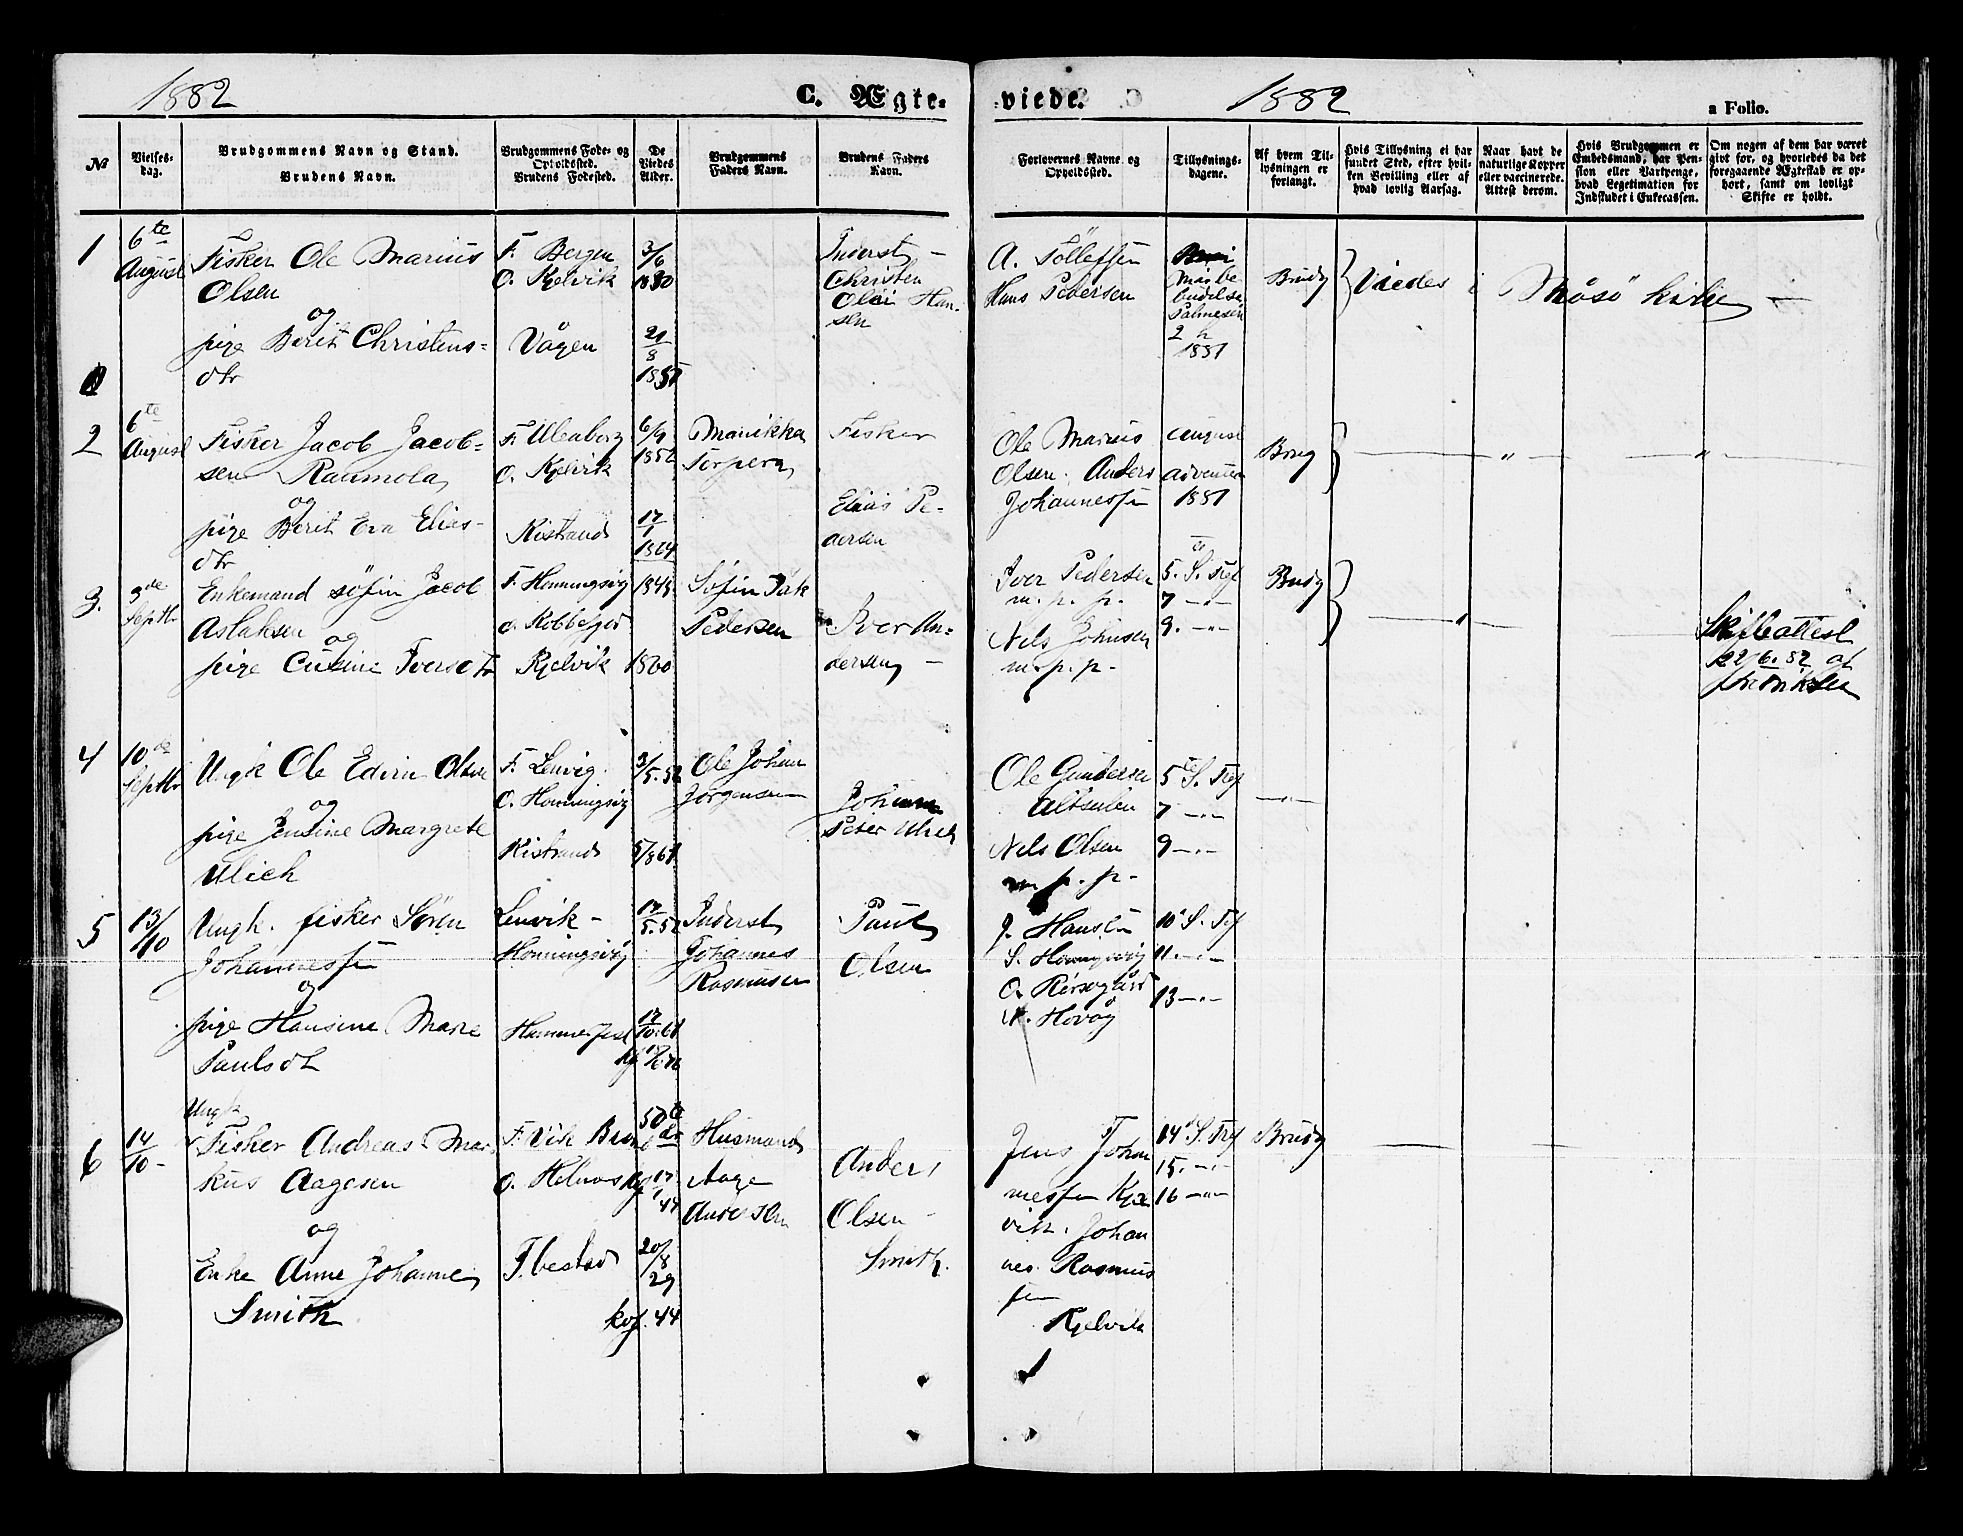 1882
C. Ægte-
viede.
1882
a Folio.
No
Vielses-
dag.
Brudgommens Navn og Stand.
Brudens Navn.
Brudgommens Føde- og
Opholdssted.
Brudens Fødested.
De
Viedes
Alder.
Brudgommens
Faders Navn.
Brudens Faders
Navn.
Forlovernes Navne og
Opholdssted.
Tillysnings-
dagene.
Af hvem Til-
lysningen er
forlangt.
Hvis Tillysning ei har
fundet Sted, efter hvil-
ken Bevilling eller af
hvad lovlig Aarsag.
Naar havt de
naturlige Kopper
eller vaccinerede.
Attest derom.
Hvis Brudgommen er
Embedsmand, har Pen-
sion eller Vartpenge,
hvad Legetimation for
Indskudet i Enkecassen.
Om nogen af dem har været
givt for, og hvorledes da det
foregaaende Ægtestad er op-
hørt, samt om lovligt
Skifte er holdt.
1
6te
August
Fisker Ole Marius
Olsen
og
pige Berit Christens-
dtr
F. Bergen
O. Kjelvik
Vågen
3/6
21
8
Inderst
Christen
Han-
sen
A. Tölleffsen
Hans Pedersen
Palmesön
2
1881
Brudg
Viedes i Måsö kirke
2
6te
August
Fisker Jacob Jacob-
sen Raumola
og
pige Berit Eva Elias-
dtr
F. Uleaborg
O. Kjelvik
Kistrand
6/9
1852
17
1
1864
Fisker
Elias Pe-
dersen
Ole Marius
Olsen. Anders
Johannessen
August
1881
Brug
3.
3de
Septbr
Enkemand söfin Jacob
Aslaksen
og
pige Iversdtr
F. Honningsvåg
O. Kobbefjord
Kjelvik
1860
Pedersen
Iver An-
dersen
Iver Pedersen
m. p. p.
Nels Johnsen
m. p. p.
5. S. Tref
7 -"-
9. -"-
Brudg
Skifteattest
4
10de
Septbr
Ungk Ole Edvin Olsen
og
pige Jensine Margrete
Ulich
F. Lenvig.
O. Honningsvåg
Kistrand
3/5.52
Ole Johan
Jørgensen
Johan
Peter Ulich
Ole Gundersen
Altsulen
Nels Olsen
m. p. p.
5te S. Tref
7 -"-
9 -"-
-"-
5
13/10
Ungk. fisker Sören
Johannessen
og
pige Hansine Marie
Paulsdt
Lenvik -
Honningsvåg
Hammerfest
17
5.52
17
Inderst
Johannes
Rasmusen
Paul
Olsen
J. Hansen
10 S. Tref
11. -"-
13 -"-
6
14
10
Ungk
Fisker Andreas Mar-
kus Aagesen
og
Enke Anne Johanne
Smith
F. Vik
O. Helnes
Ibestad
50
17
1
44
20/8
29
kof. 44
Husmand
Aage
Andersen
Anders
Olsen
Smith.
Jens Johan
nessen Kjel
vik. Johan
nes Rasmus
sen
Kjelvik
14 S. Tref
15. -"-
16 -"-
Brudg